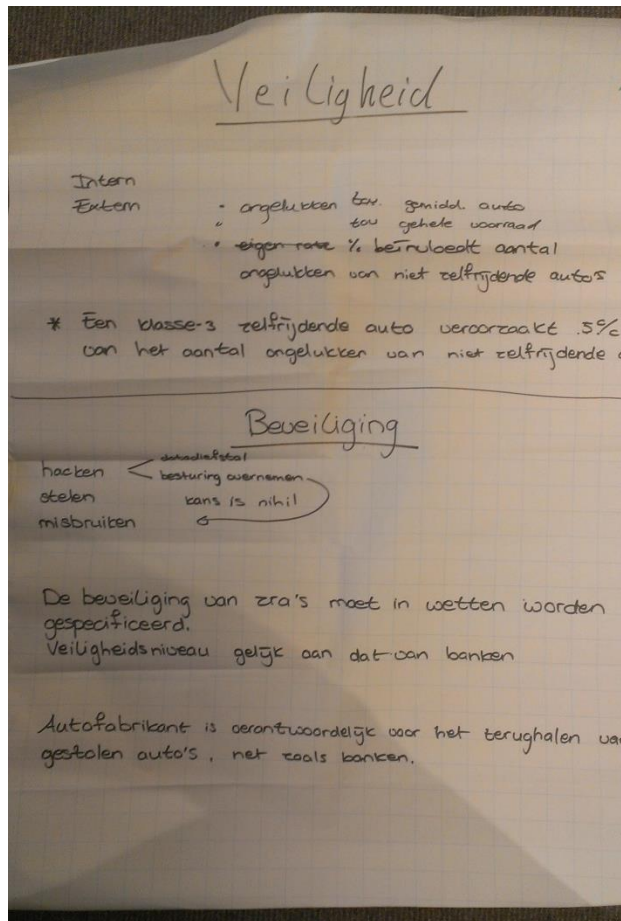 Veiligheid
Intern
Extern
• ongelukken tov. gemidd. auto
" tov gehele voorraad
• eigen rate % beïnvloedt aantal
ongelukken van niet zelfrijdende auto's
* Een klasse-3 zelfrijdende auto veroorzaakt .5%
van het aantal ongelukken van niet zelfrijdende
Beveiliging
hacken datadiefstal
besturing overnemen
stelen kans is nihil
misbruiken
De beveiliging van zra's moet in wetten worden
gespecificeerd.
Veiligheidsniveau gelijk aan dat van banken
Autofabrikant is verantwoordelijk voor het terughalen va
gestolen auto's, net zoals banken.